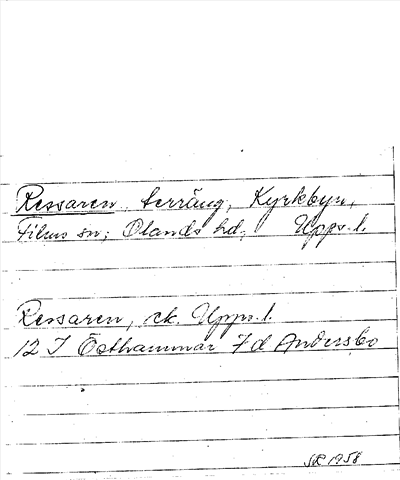 Ressaren, terräng, Kyrkbyn,
Films sn; Olands hd; Upps. l.
Ressaren, ek. Upps. l.
12 I Östhammar 7d Andersbo
1958